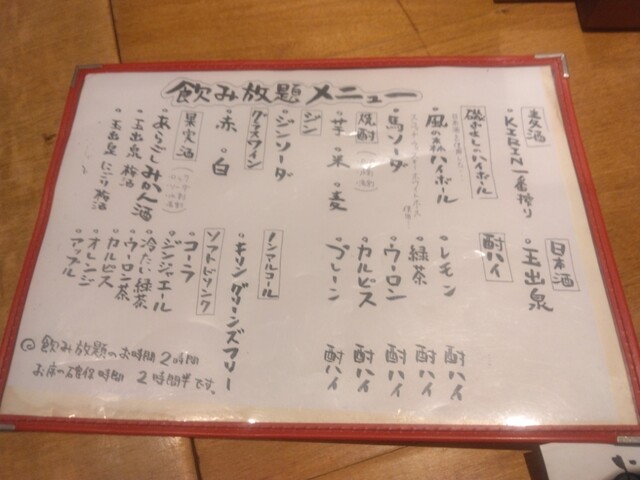 飲み放題メニュー
麦酒
・KIRIN一番搾り
ハイボール
・風の森ハイボール
・馬ソーダ
焼酎
・芋・米・麦
ジン
・ジンソーダ
グラスワイン
・赤・白
果実酒
・あらごしみかん酒
・玉出泉 梅酒
・玉出泉 にごり梅酒
日本酒
・玉出泉
酎ハイ
・レモン酎ハイ
・緑茶酎ハイ
・ウーロン酎ハイ
・カルピス酎ハイ
・プレーン酎ハイ
ノンアルコール
・キリングリーンズフリー
ソフトドリンク
・コーラ
・ジンジャエール
・冷たい緑茶
・ウーロン茶
・カルピス
・オレンジ
・アップル
◎飲み放題のお時間2時間
お席の確保時間 2時間半です。